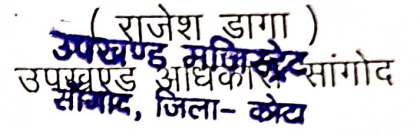 ( राजेश डागा )
उपखण्ड मजिस्ट्रेट
उपखण्ड अधिकारी सांगोद
सांगोद, जिला- कोटा